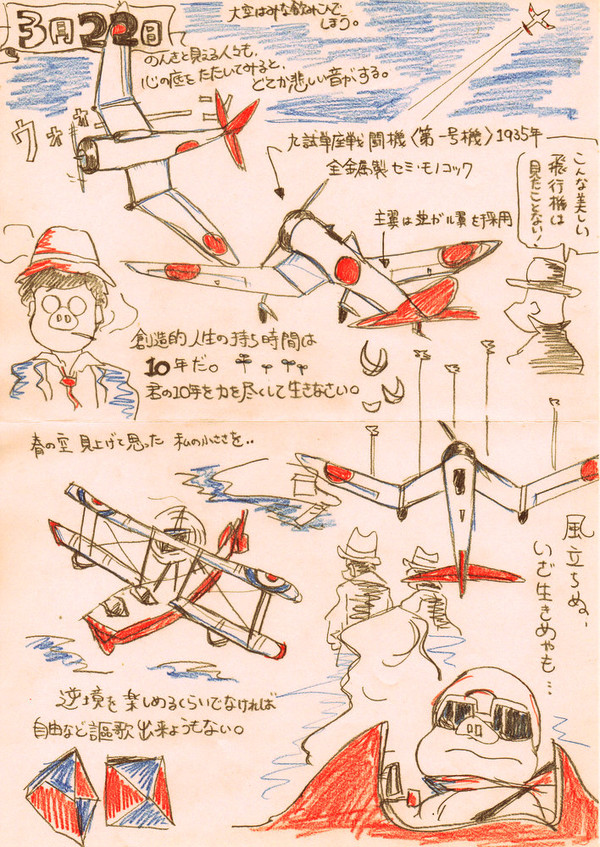 3月22日
大空はみな飲みんで
しまう。
のんきと見える人々も、
心の底をたたいてみると、
どこか悲しい音がする。
ウォォ
九試単座戦闘機〈第一号機〉1935年
全金属製セミ・モノコック
主翼は逆ガル翼を採用
こんな美しい
飛行機は
見たことない!
創造的人生の持ち時間は
10年だ。
君の10年を力を尽くして生きなさい。
春の空見上げて思った 私の小ささを..
風立ちぬ、
いざ生きめやも…
逆境を楽しめるくらいでなければ
自由など謳歌出来ようもない。